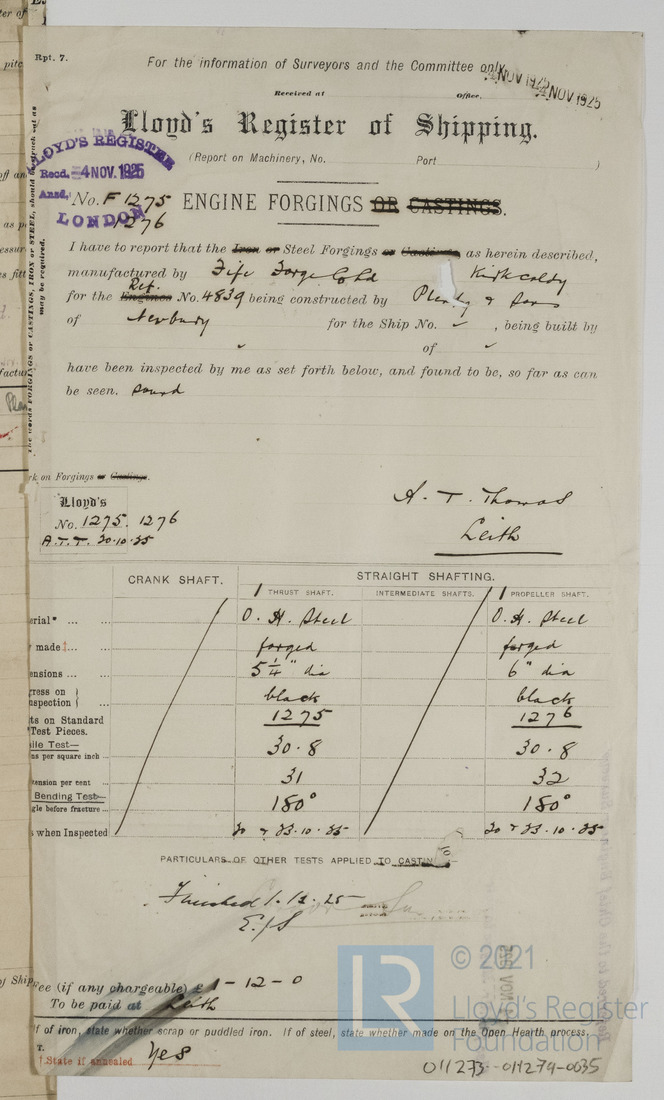 Rpt. 7.
For the information of Surveyors and the Committee only.
4 NOV 1925
NOV 1925
Received at
Office.
Lloyd's Register of Shipping.
(Report on Machinery, No. Port )
LLOYD'S REGISTER
Recd. 4 NOV. 1925
Ansd.
LONDON
No. F 1275 ENGINE FORGINGS OR CASTINGS.
1276
I have to report that the Iron or Steel Forgings or Castings as herein described,
manufactured by Fife Forge Co Ld Kirkcaldy
Ref.
for the Engines No. 4839 being constructed by Plenty & Sons
of Newbury for the Ship No. ✓ , being built by
✓ of ✓
have been inspected by me as set forth below, and found to be, so far as can
be seen. sound
rk on Forgings or Castings.
Lloyd's
No. 1275. 1276
A.T.T. 20.10.25
A. T. Thomas
Leith
CRANK SHAFT. STRAIGHT SHAFTING.
1 THRUST SHAFT. INTERMEDIATE SHAFTS. 1 PROPELLER SHAFT.
erial* ... ... O. H. Steel O. H. Steel
made‡... ... forged forged
ensions ... ... 5 1/4" dia 6" dia
gress on } black black
nspection }
ts on Standard 1275 1276
Test Pieces.
ile Test—
ns per square inch ... 30.8 30.8
tension per cent ... 31 32
Bending Test—
gle before fracture ... 180° 180°
s when Inspected 20 & 23.10.25 20 & 23.10.25
PARTICULARS OF OTHER TESTS APPLIED TO CASTIN
Finished 1.12.25
Fee (if any chargeable) £ 1-12-0
To be paid at Leith
If of iron, state whether scrap or puddled iron. If of steel, state whether made on the Open Hearth process.
T.
‡ State if annealed Yes
LR
© 2021
Lloyd's Register
Foundation
011273-011274-0035
The words FORGINGS or CASTINGS, IRON or STEEL, should be struck out as
may be required.